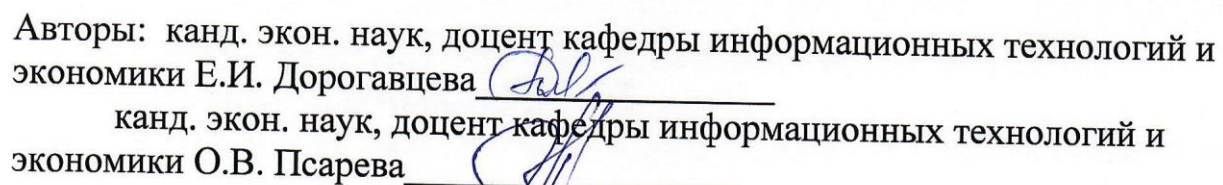 Авторы: канд. экон. наук, доцент кафедры информационных технологий и
экономики Е.И. Дорогавцева
канд. экон. наук, доцент кафедры информационных технологий и
экономики О.В. Псарева